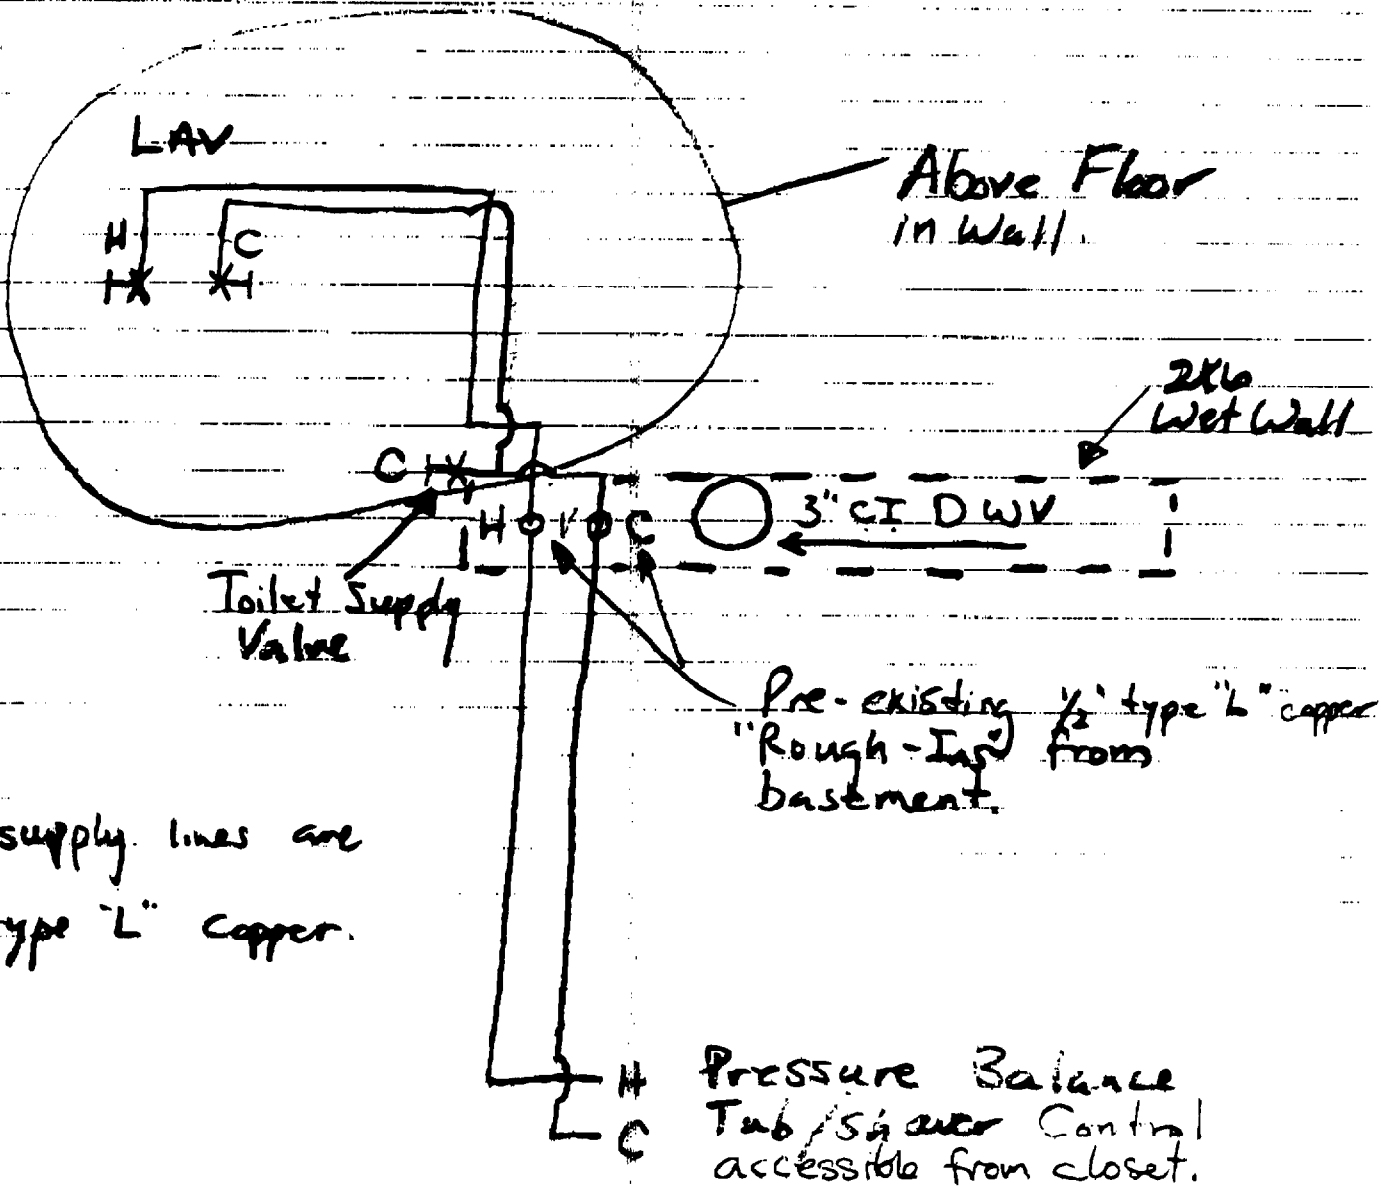 LAV
Above Floor
in Wall.
H
C
2X6
Wet Wall
C
H
C
3" CI DWV
Toilet Supply
Valve
Pre-existing 1/2" type "L" copper
"Rough-Ins" from
basement.
supply lines are
ype "L" Copper.
H
C
Pressure Balance
Tub/Shower Control
accessible from closet.